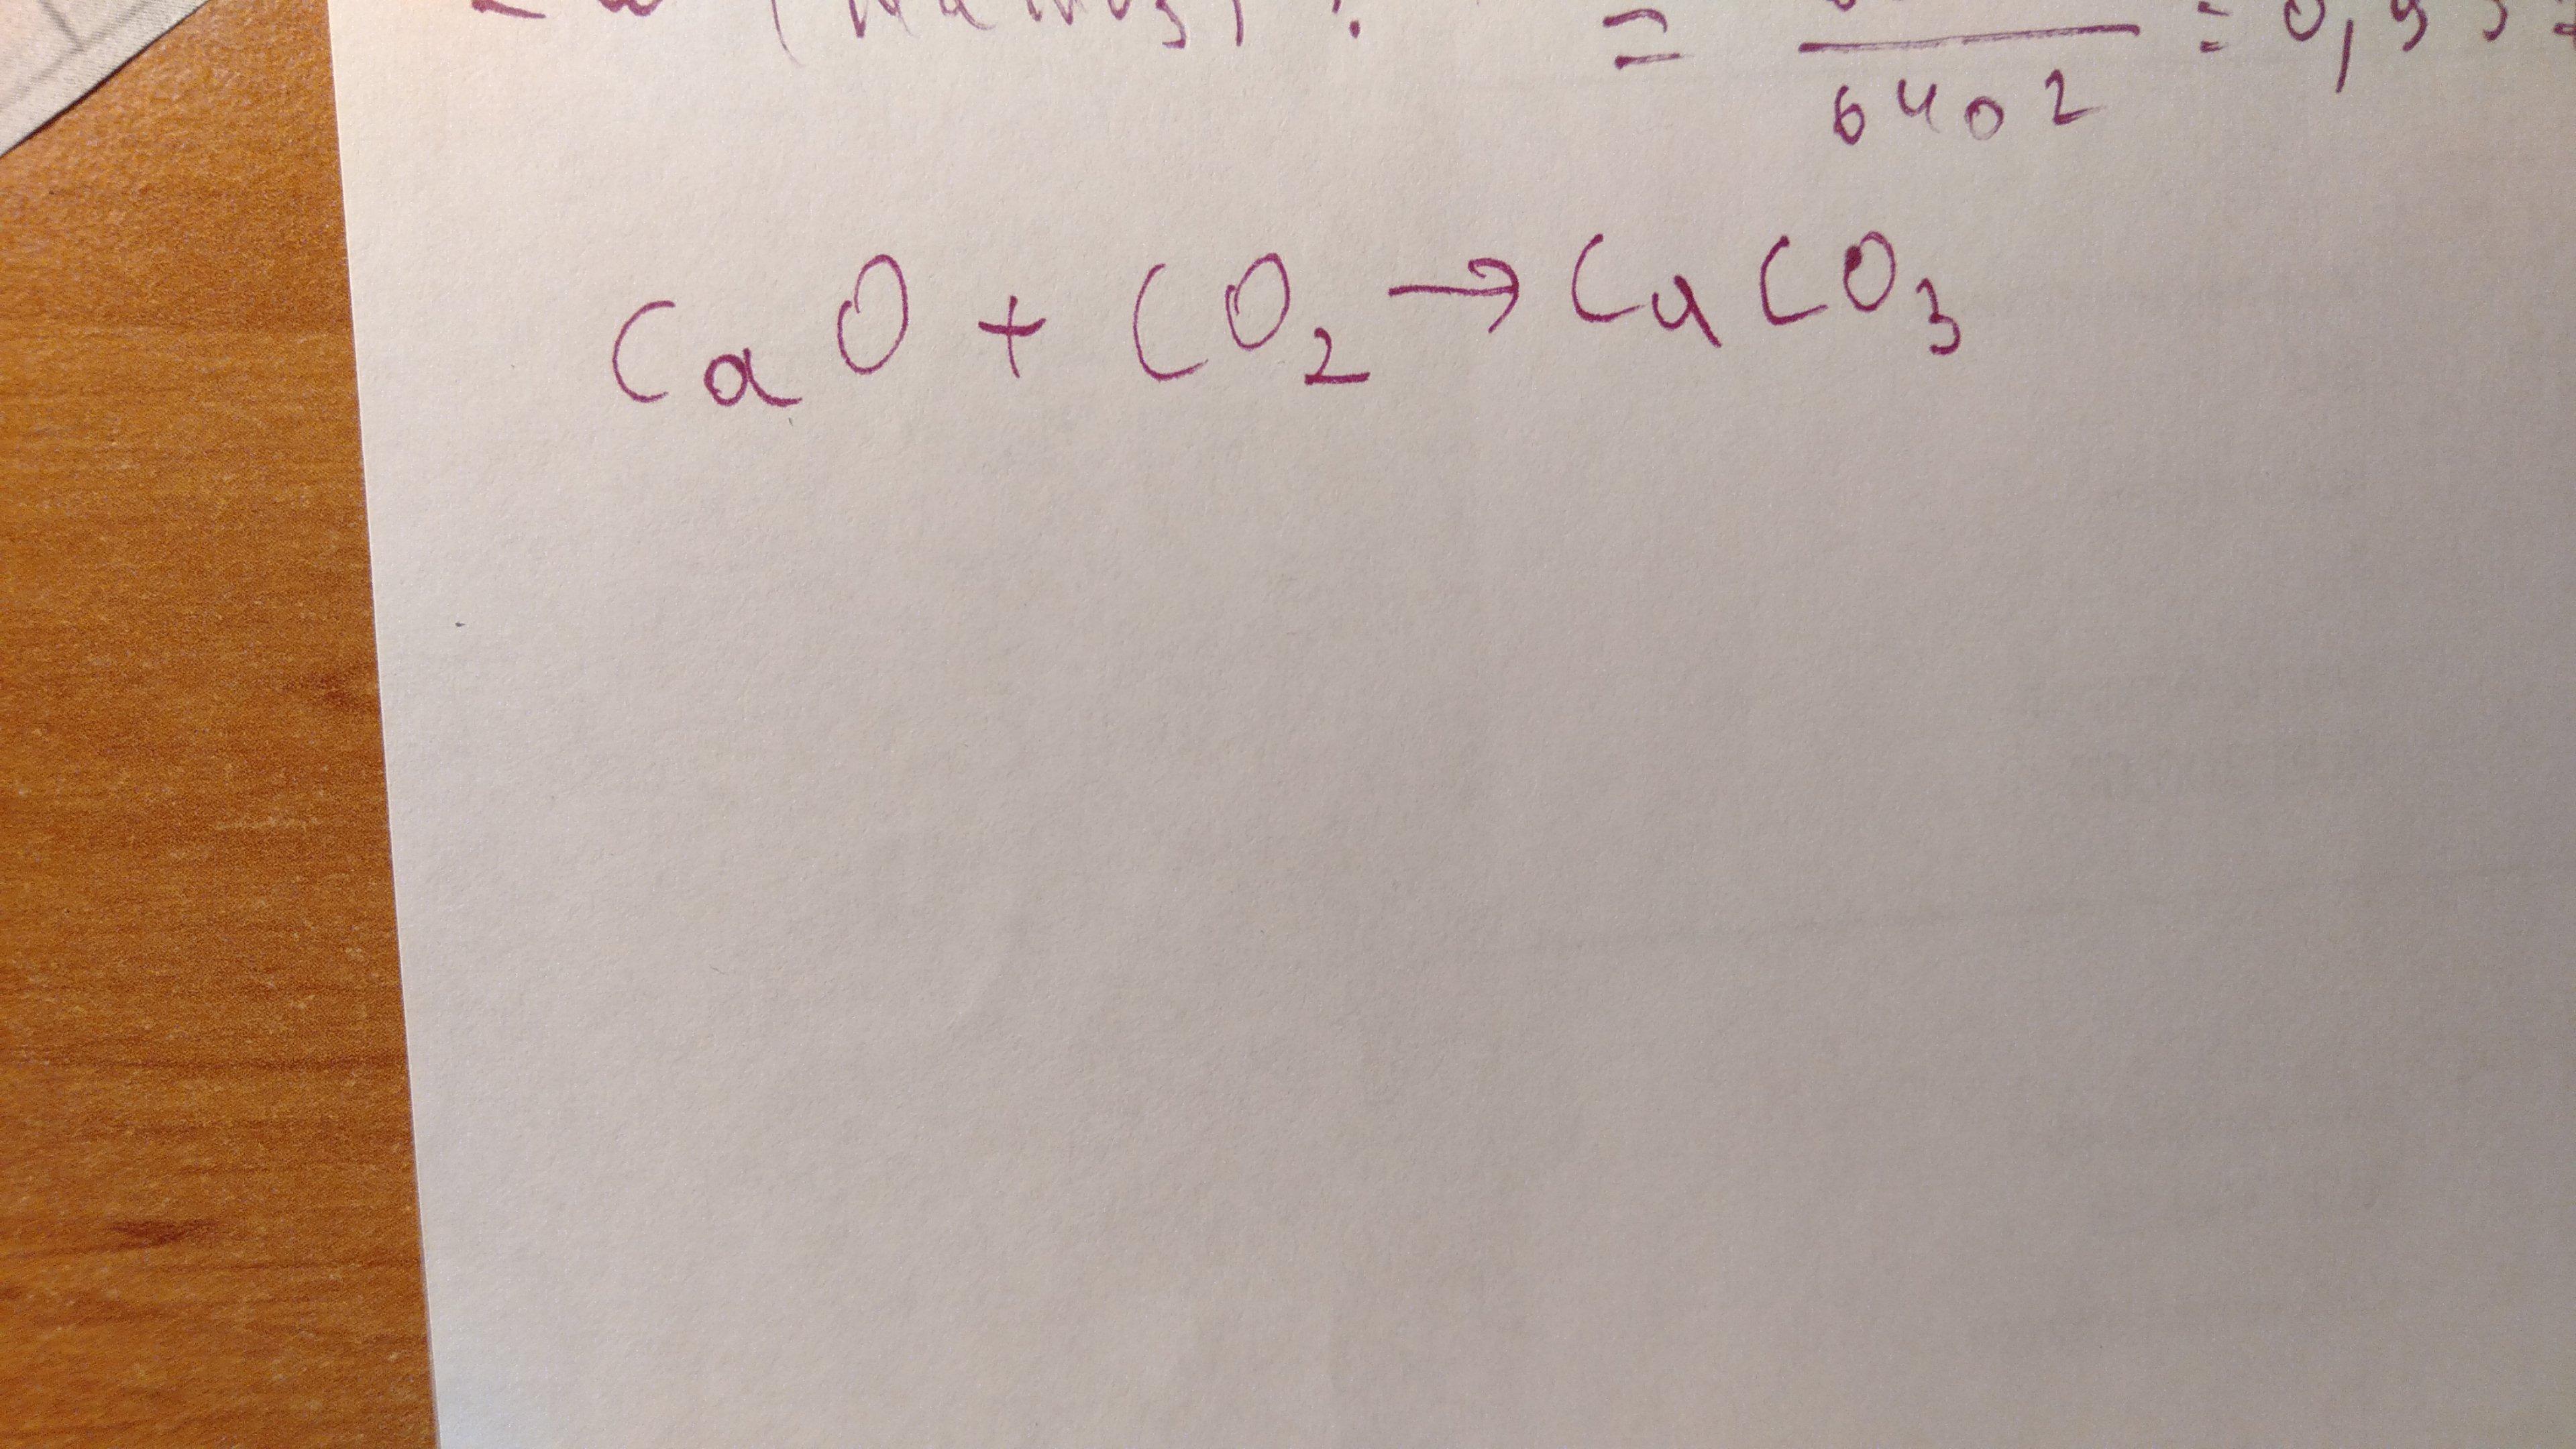 = 6402 = 0,95
CaO + CO₂ → CaCO₃